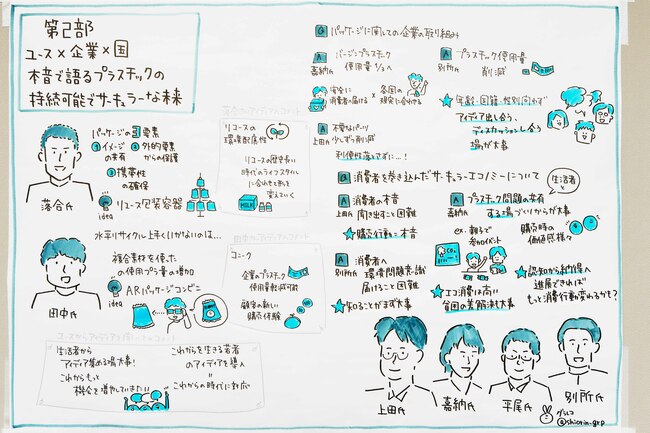 第2部
ユース×企業×国
本音で語るプラスチックの
持続可能でサーキュラーな未来
パッケージの3要素
①イメージの共有
②外的要素からの保護
③携帯性の確保
idea
リユース包装容器
落合氏
水平リサイクル上手くいかないのは…
複合素材を使った
の使用プラ量の増加
idea
ARパッケージコンビニ
田中氏
リユースの
環境配慮性
リユースの歴史長い
時代のライフスタイル
に合わせて
変えていく
MILK
ユニーク
企業のプラスチック
使用量軽減可能
顧客の新しい
購買体験
生活者から
アイディア集める場大事!
これからもっと
機会を増やしていきたい!
これからを生きる若者
のアイディアを導入
=これからの時代に対応
Q パッケージに関しての企業の取り組み
A バージンプラスチック
嘉納氏 使用量1/3へ
安全に
消費者へ届ける
×
各国の
現実に合わせる
A プラスチック使用量
別所氏 削減
☆年齢・国籍・性別問わず
アイディア出し合う、
ディスカッションし合う
場が大事
A 不要なパーツ
上田氏 少しずつ削減
利便性落とさずに…!
Q 消費者を巻き込んだサーキュラーエコノミーについて
A 消費者の本音
上田氏 聞き出すこと困難
☆購買行動に本音
A プラスチック問題の共有
嘉納氏 する場づくりからが大事
生活者と
ex. 親子で
参加イベント
CO2
購買時の
価値感様々
A 消費者へ
別所氏 環境問題意識
届けること困難
☆知ることがまず大事
☆エコ消費は高い
貧困の差解決大事
☆認知から納得へ
進展できれば
もっと消費行動変わるかも?
上田氏
嘉納氏
平尾氏
別所氏
グレコ
@shiorin.gxp